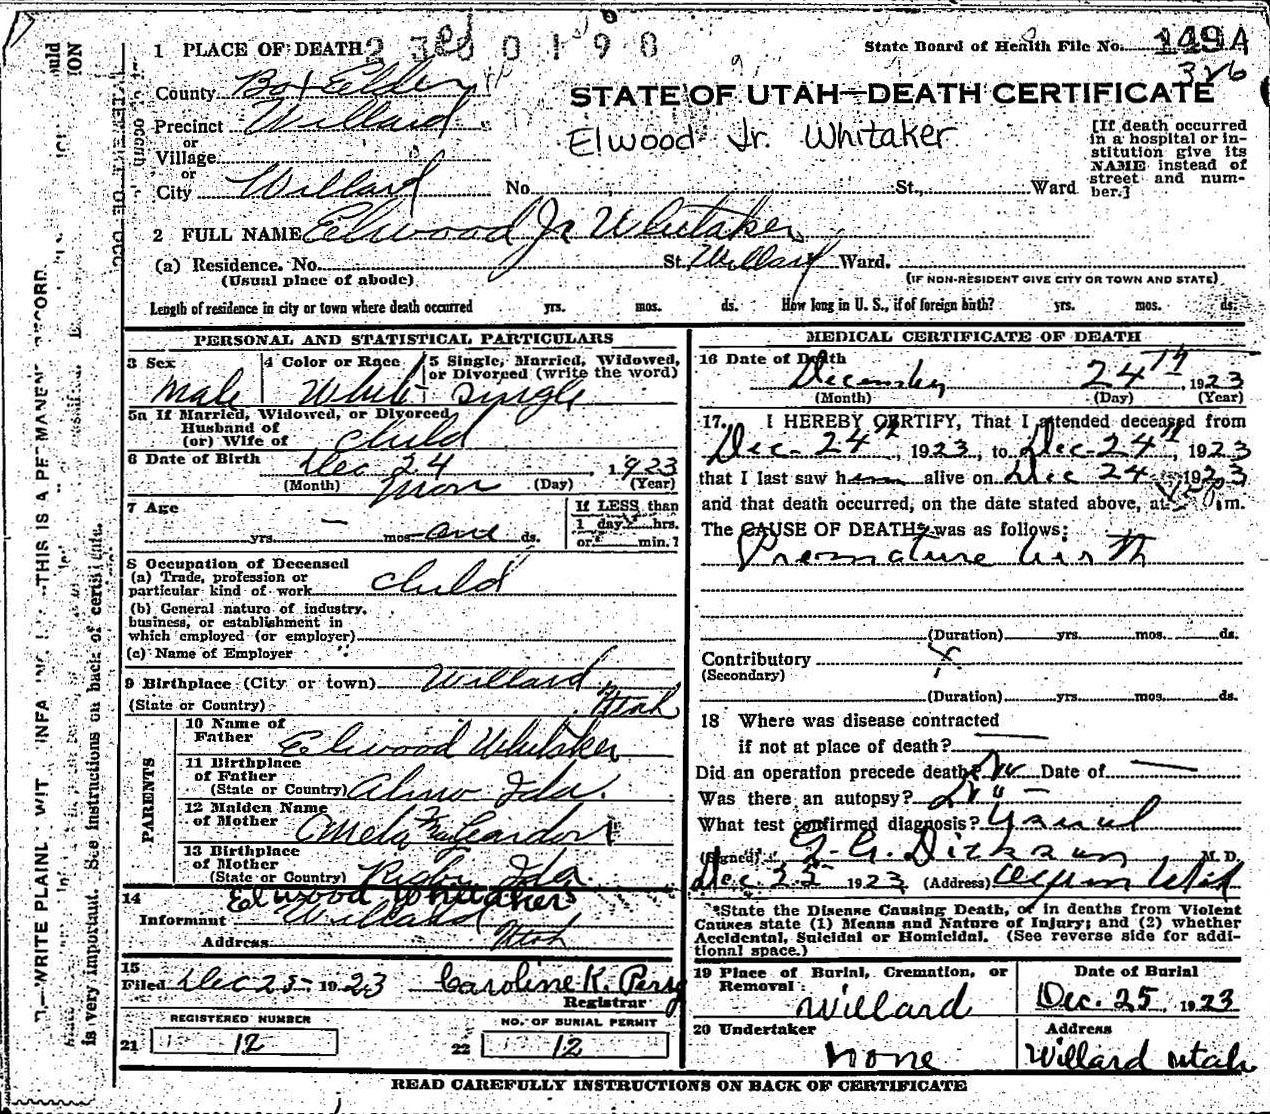 1 PLACE OF DEATH 2 3 0 1 9 8
State Board of Health File No. 149A
326
County Box Elder
STATE OF UTAH—DEATH CERTIFICATE
Precinct Willard
Elwood Jr. Whitaker
or
Village
or
City Willard No. St., Ward
[If death occurred
in a hospital or in-
stitution give its
NAME instead of
street and num-
ber.]
2 FULL NAME Elwood Jr Whitaker
(a) Residence. No. St. Willard Ward.
(Usual place of abode) (IF NON-RESIDENT GIVE CITY OR TOWN AND STATE)
Length of residence in city or town where death occurred yrs. mos. ds. How long in U. S., if of foreign birth? yrs. mos. ds.
PERSONAL AND STATISTICAL PARTICULARS
3 Sex 4 Color or Race 5 Single, Married, Widowed,
or Divorced (write the word)
Male White Single
5a If Married, Widowed, or Divorced
Husband of
(or) Wife of Child
6 Date of Birth Dec 24, 1923
(Month) (Day) (Year)
Mon
7 Age
If LESS than
1 day hrs.
or min.?
— yrs. mos. one ds.
8 Occupation of Deceased
(a) Trade, profession or
particular kind of work child
(b) General nature of industry,
business, or establishment in
which employed (or employer)
(c) Name of Employer
9 Birthplace (City or town) Willard
(State or Country) Utah
PARENTS
10 Name of
Father Elwood Whitaker
11 Birthplace
of Father
(State or Country) Almo Ida.
12 Maiden Name
of Mother
13 Birthplace
of Mother
(State or Country) Rigby Ida.
14 Elwood Whitaker
Informant Willard
Address Utah
15
Filed Dec 25- 1923 Caroline K. Perry
Registrar
REGISTERED NUMBER NO. OF BURIAL PERMIT
21 12 22 12
MEDICAL CERTIFICATE OF DEATH
16 Date of Death
December 24th, 1923
(Month) (Day) (Year)
17. I HEREBY CERTIFY, That I attended deceased from
Dec. 24th, 1923, to Dec-24th 1923
that I last saw h alive on Dec 24 1923
and that death occurred, on the date stated above, at m.
The CAUSE OF DEATH* was as follows:
Premature birth
(Duration) yrs. mos. ds.
Contributory
(Secondary)
(Duration) yrs. mos. ds.
18 Where was disease contracted
if not at place of death? —
Did an operation precede death? No Date of —
Was there an autopsy? No —
What test confirmed diagnosis? Usual
(Signed) Dickson M. D.
Dec. 25 1923 (Address)
*State the Disease Causing Death, or in deaths from Violent
Causes state (1) Means and Nature of Injury; and (2) whether
Accidental, Suicidal or Homicidal. (See reverse side for addi-
tional space.)
19 Place of Burial, Cremation, or
Removal Willard
Date of Burial
Dec. 25, 1923
20 Undertaker none
Address
Willard utah
READ CAREFULLY INSTRUCTIONS ON BACK OF CERTIFICATE
WRITE PLAINL THIS IS A PERMANENT RECORD.
is very important. See instructions on back of certificate.